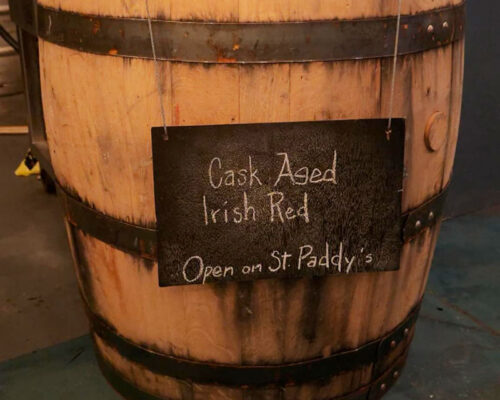 Cask Aged
Irish Red
Open on St. Paddy's